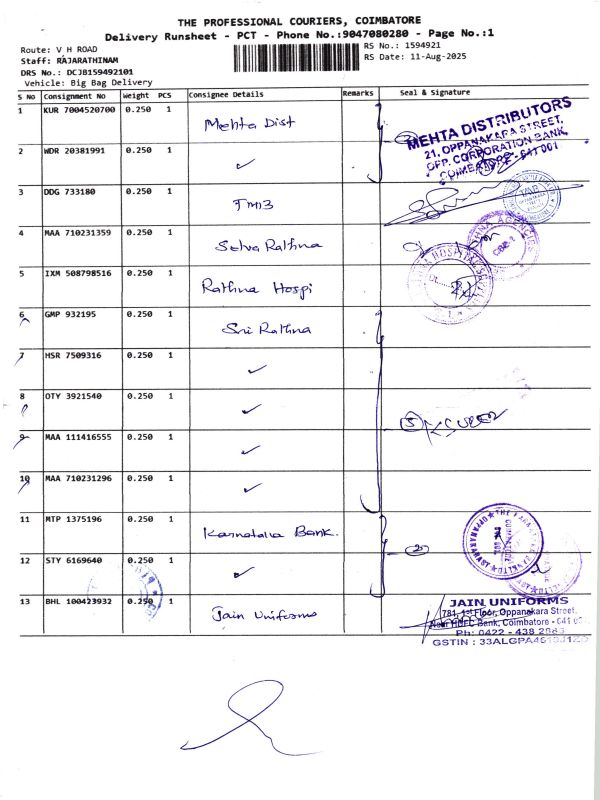 THE PROFESSIONAL COURIERS, COIMBATORE
Delivery Runsheet - PCT - Phone No.:9047080280 - Page No.:1
Route: V H ROAD
RS No.: 1594921
Staff: RAJARATHINAM
RS Date: 11-Aug-2025
DRS No.: DCJB159492101
Vehicle: Big Bag Delivery
S No Consignment No Weight PCS Consignee Details Remarks Seal & Signature
1 KUR 7004520700 0.250 1 Mehta Dist
MEHTA DISTRIBUTORS
21, OPPANAKARA STREET,
OPP. CORPORATION BANK,
COIMBATORE - 641 001
2 WDR 20381991 0.250 1 ✓
3 DDG 733180 0.250 1 TMB
4 MAA 710231359 0.250 1 Selva Rathna
5 IXM 508798516 0.250 1 Rathna Hospi
6 GMP 932195 0.250 1 Sri Rathna
7 HSR 7509316 0.250 1 ✓
8 OTY 3921540 0.250 1 ✓
9 MAA 111416555 0.250 1 ✓
(5)
10 MAA 710231296 0.250 1 ✓
11 MTP 1375196 0.250 1 Karnataka Bank.
(2)
12 STY 6169640 0.250 1 ✓
13 BHL 100423932 0.250 1 Jain Uniforms
JAIN UNIFORMS
781, 1st Floor, Oppanakara Street,
Near HDFC Bank, Coimbatore - 641
Ph: 0422 - 438
GSTIN :